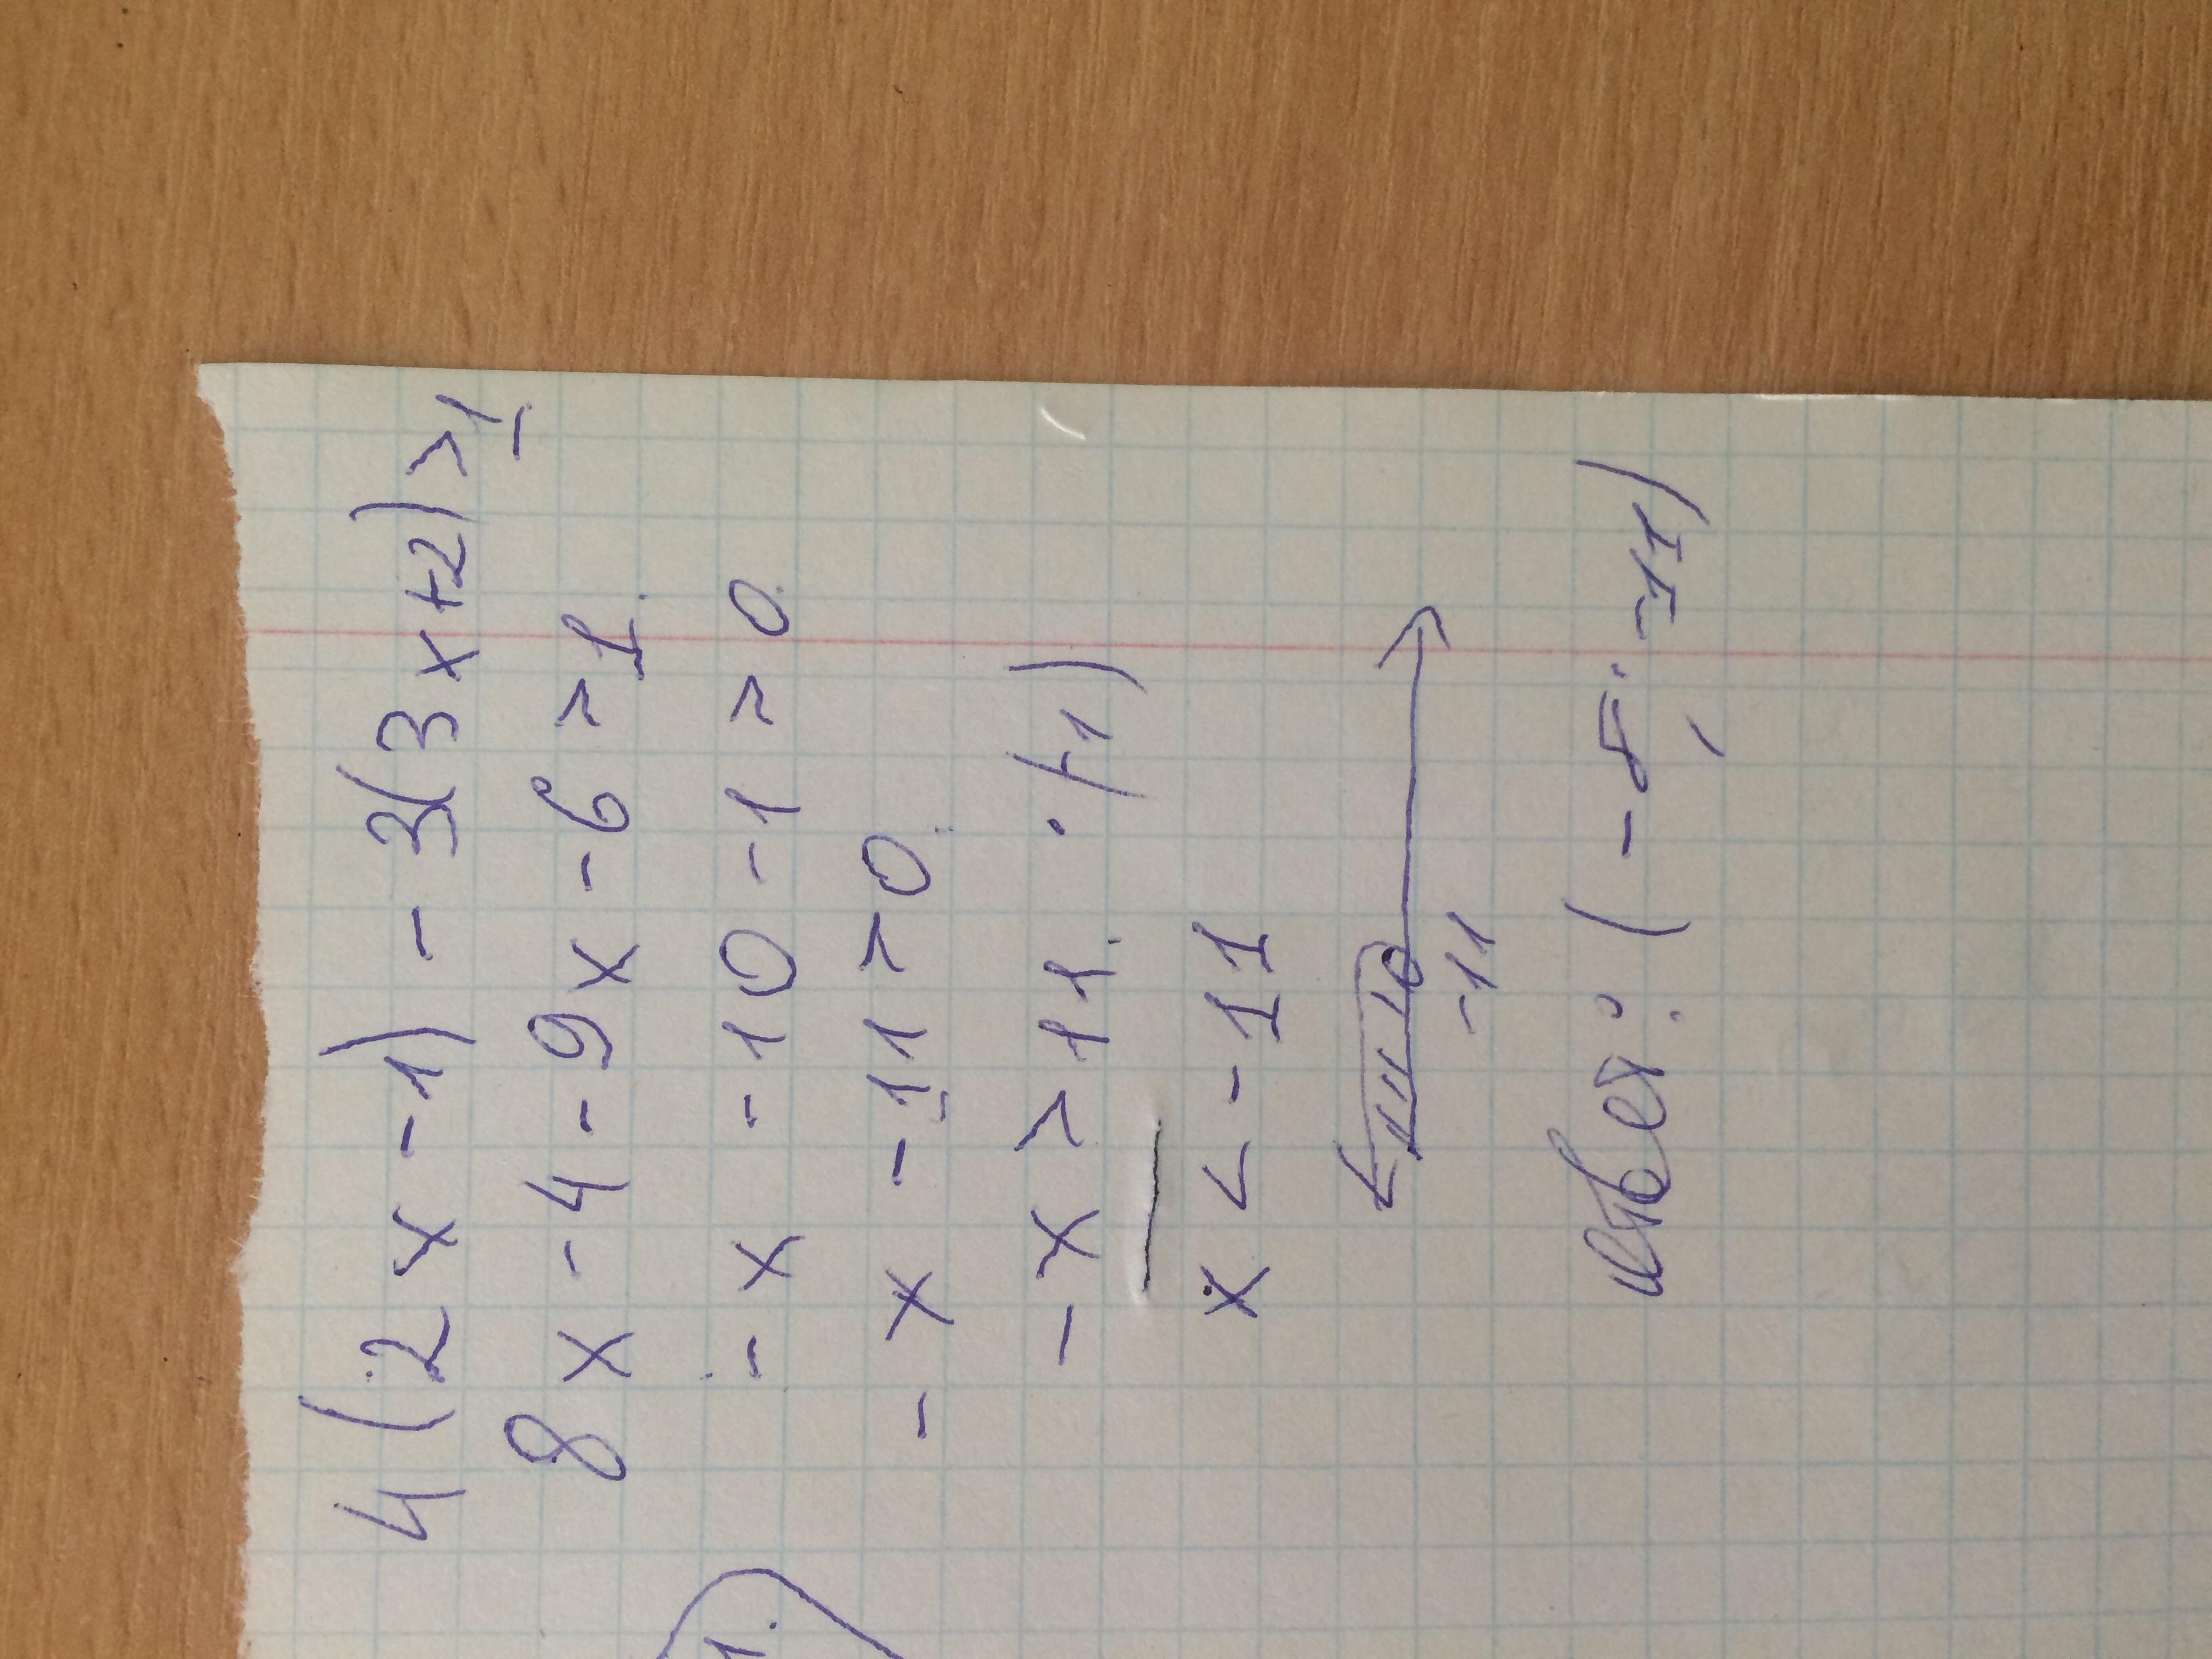 4(2x-1)-3(3x+2)>1
8x-4-9x-6>1
-x-10-1>0
1.
-x-11>0
-x>11 ·(-1)
x<-11
-11
Ответ: (-∞; -11)